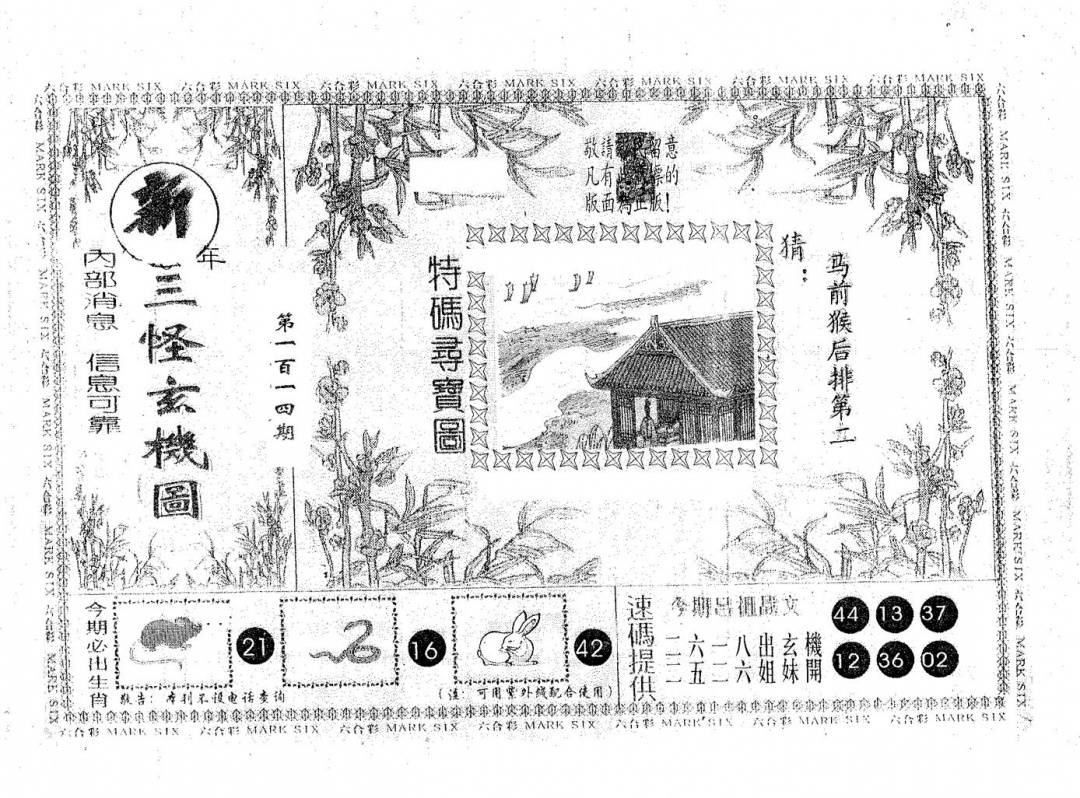 六合彩 MARK SIX 六合彩 MARK SIX 六合彩 MARK SIX 六合彩 MARK SIX 六合彩 MARK SIX 六合彩 MARK SIX 六合彩 MARK SIX
新
年
三怪玄機圖
內部消息 信息可靠
第一百一四期
敬請 意
凡有 的
版面為正版!
特碼尋寶圖
猜:
马前猴后排第二
今期必出生肖
21
16
42
敬告: 本刊不设电话查询
(注: 可用紫外线配合使用)
速碼提供
今期
二六一八出玄機
二五二六姐妹開
44 13 37
12 36 02
六合彩 MARK SIX 六合彩 MARK SIX 六合彩 MARK SIX 六合彩 MARK SIX 六合彩 MARK SIX 六合彩 MARK SIX 六合彩 MARK SIX